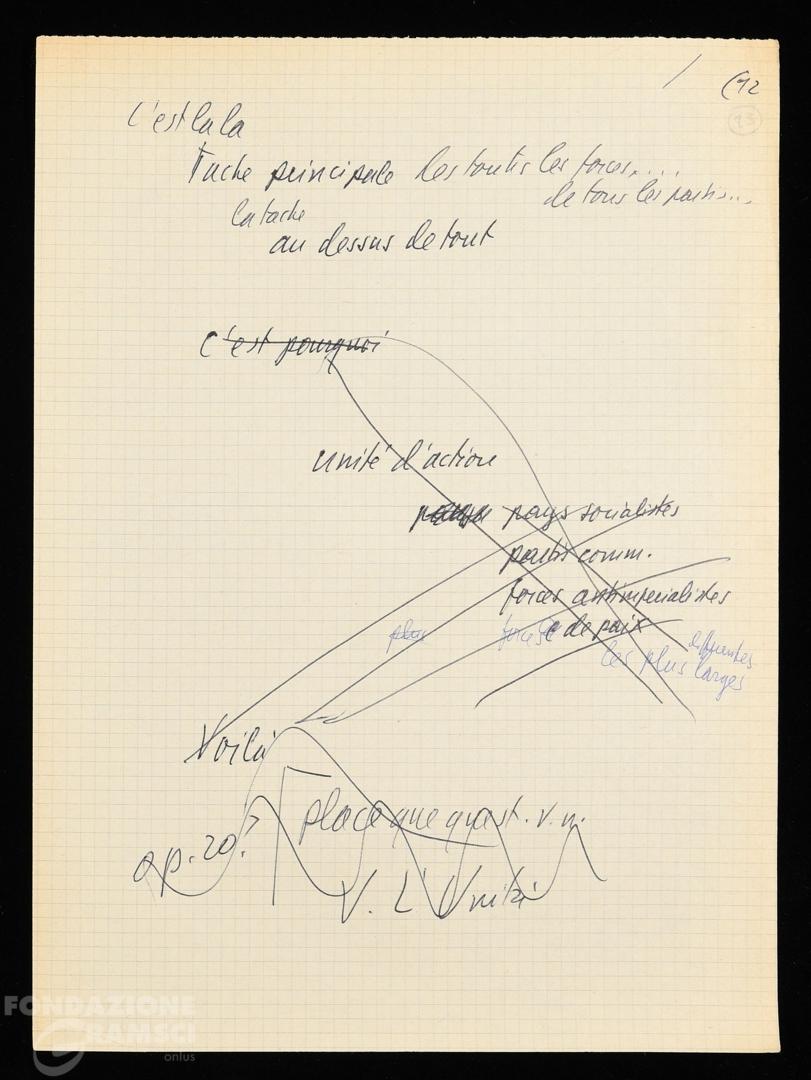 (12
13
C'est la la
Tache principale des toutes les forces....
de tous les partis...
la tache
au dessus de tout
C'est pourquoi
unité d'action
pays socialistes
partis comm.
forces antiimperialistes
plus forces de paix differentes
les plus larges
Voilà
op. 20?
place que quest. v. n.
V. L'Unità
FONDAZIONE
GRAMSCI
onlus